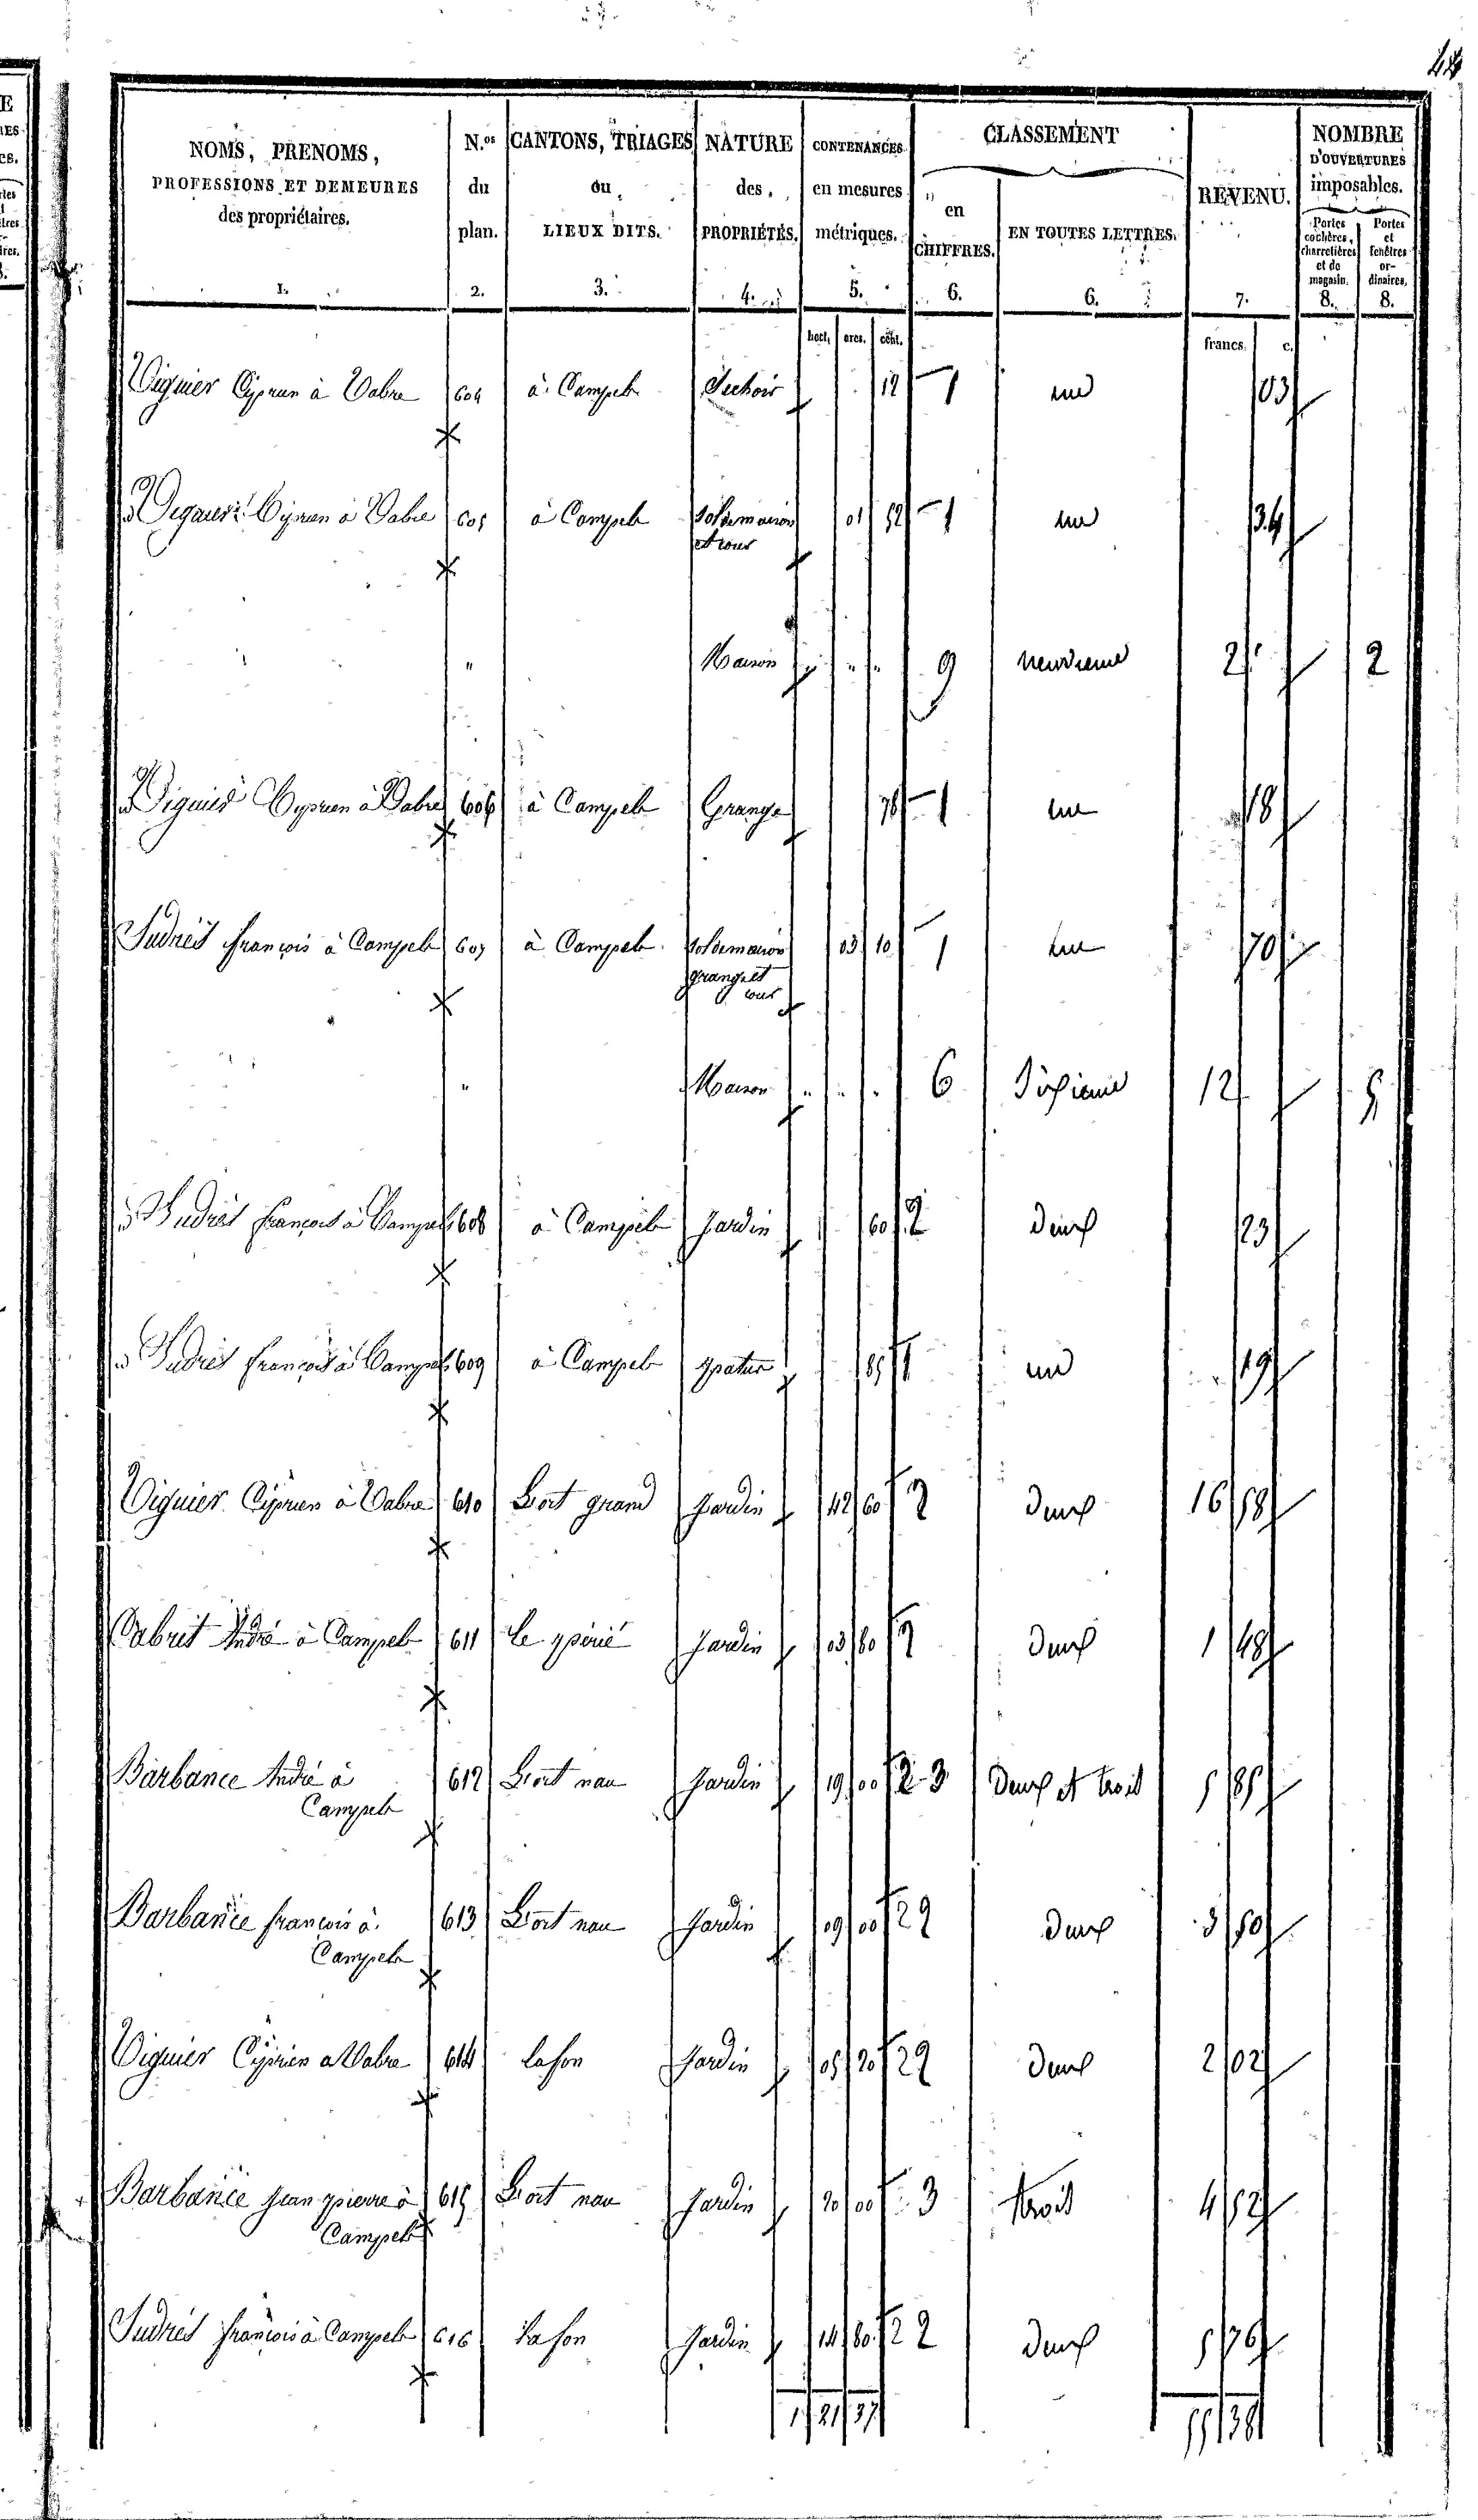 NOMS, PRENOMS,
PROFESSIONS ET DEMEURES
des propriétaires.
1.
N.os
du
plan.
2.
CANTONS, TRIAGES
ou
LIEUX DITS.
3.
NATURE
des
PROPRIÉTÉS.
4.
CONTENANCES
en mesures
métriques.
5.
CLASSEMENT
en
CHIFFRES.
6.
EN TOUTES LETTRES.
6.
REVENU.
7.
NOMBRE
D'OUVERTURES
imposables.
Portes
cochères,
charretières
et de
magasin.
8.
Portes
et
fenêtres
or-
dinaires.
8.
hect. ares. cent. francs. c.
Viguier Cyprien à Vabre 604 à Campels Sechoir 12 1 un 03
Cyprien à Vabre 605 à Campels Sol de maison 01 52 1 un 34
et cour
" Maison " " " 9 neuvieme 2 2
Viguier Cyprien à Vabre 606 à Campels Grange 78 1 un 18
Sudriés françois à Campels 607 à Campels Sol de maison 03 10 1 un 70
grange et
cour
" Maison " " " 6 Sixieme 12 5
Sudriés françois à Campels 608 à Campels Jardin 60 2 deux 23
Sudriés françois à Campels 609 à Campels patus 85 1 un 19
Viguier Cyprien à Vabre 610 Lort grand Jardin 42 60 2 deux 16 58
Cabrit André à Campels 611 Le périé Jardin 03 80 2 deux 1 48
Barbance André à 612 Lort nau Jardin 19 00 2-3 deux et trois 5 85
Campels
Barbance francois à 613 Lort nau Jardin 09 00 2 deux 3 50
Campels
Viguier Cyprien a Vabre 614 Lafon Jardin 05 20 2 deux 2 02
Barbance Jean pierre à 615 Lort nau Jardin 20 00 3 trois 4 52
Campels
Sudriés francois à Campels 616 Lafon Jardin 14 80 2 deux 5 76
1 21 37 55 38